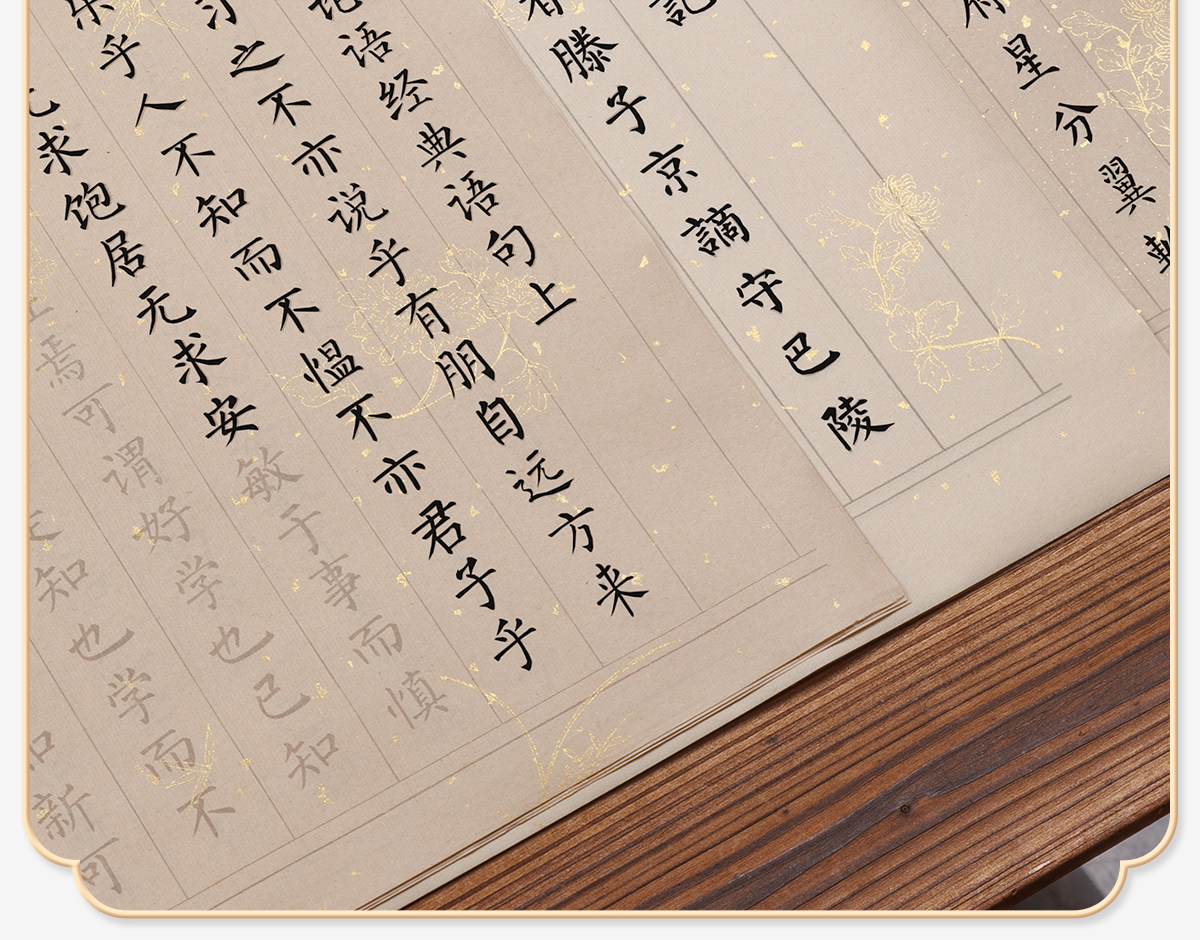 星分翼
記
春滕子京謫守巴陵
论语经典语句上
习之不亦说乎有朋自远方来
乐乎人不知而不愠不亦君子乎
无求饱居无求安敏于事而慎
正焉可谓好学也已知
知也学而不
知新可